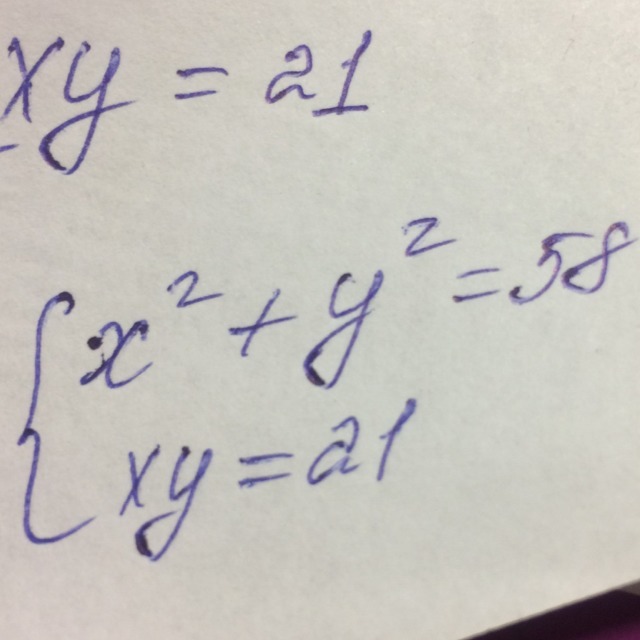 xy = 21
x² + y² = 58
xy = 21